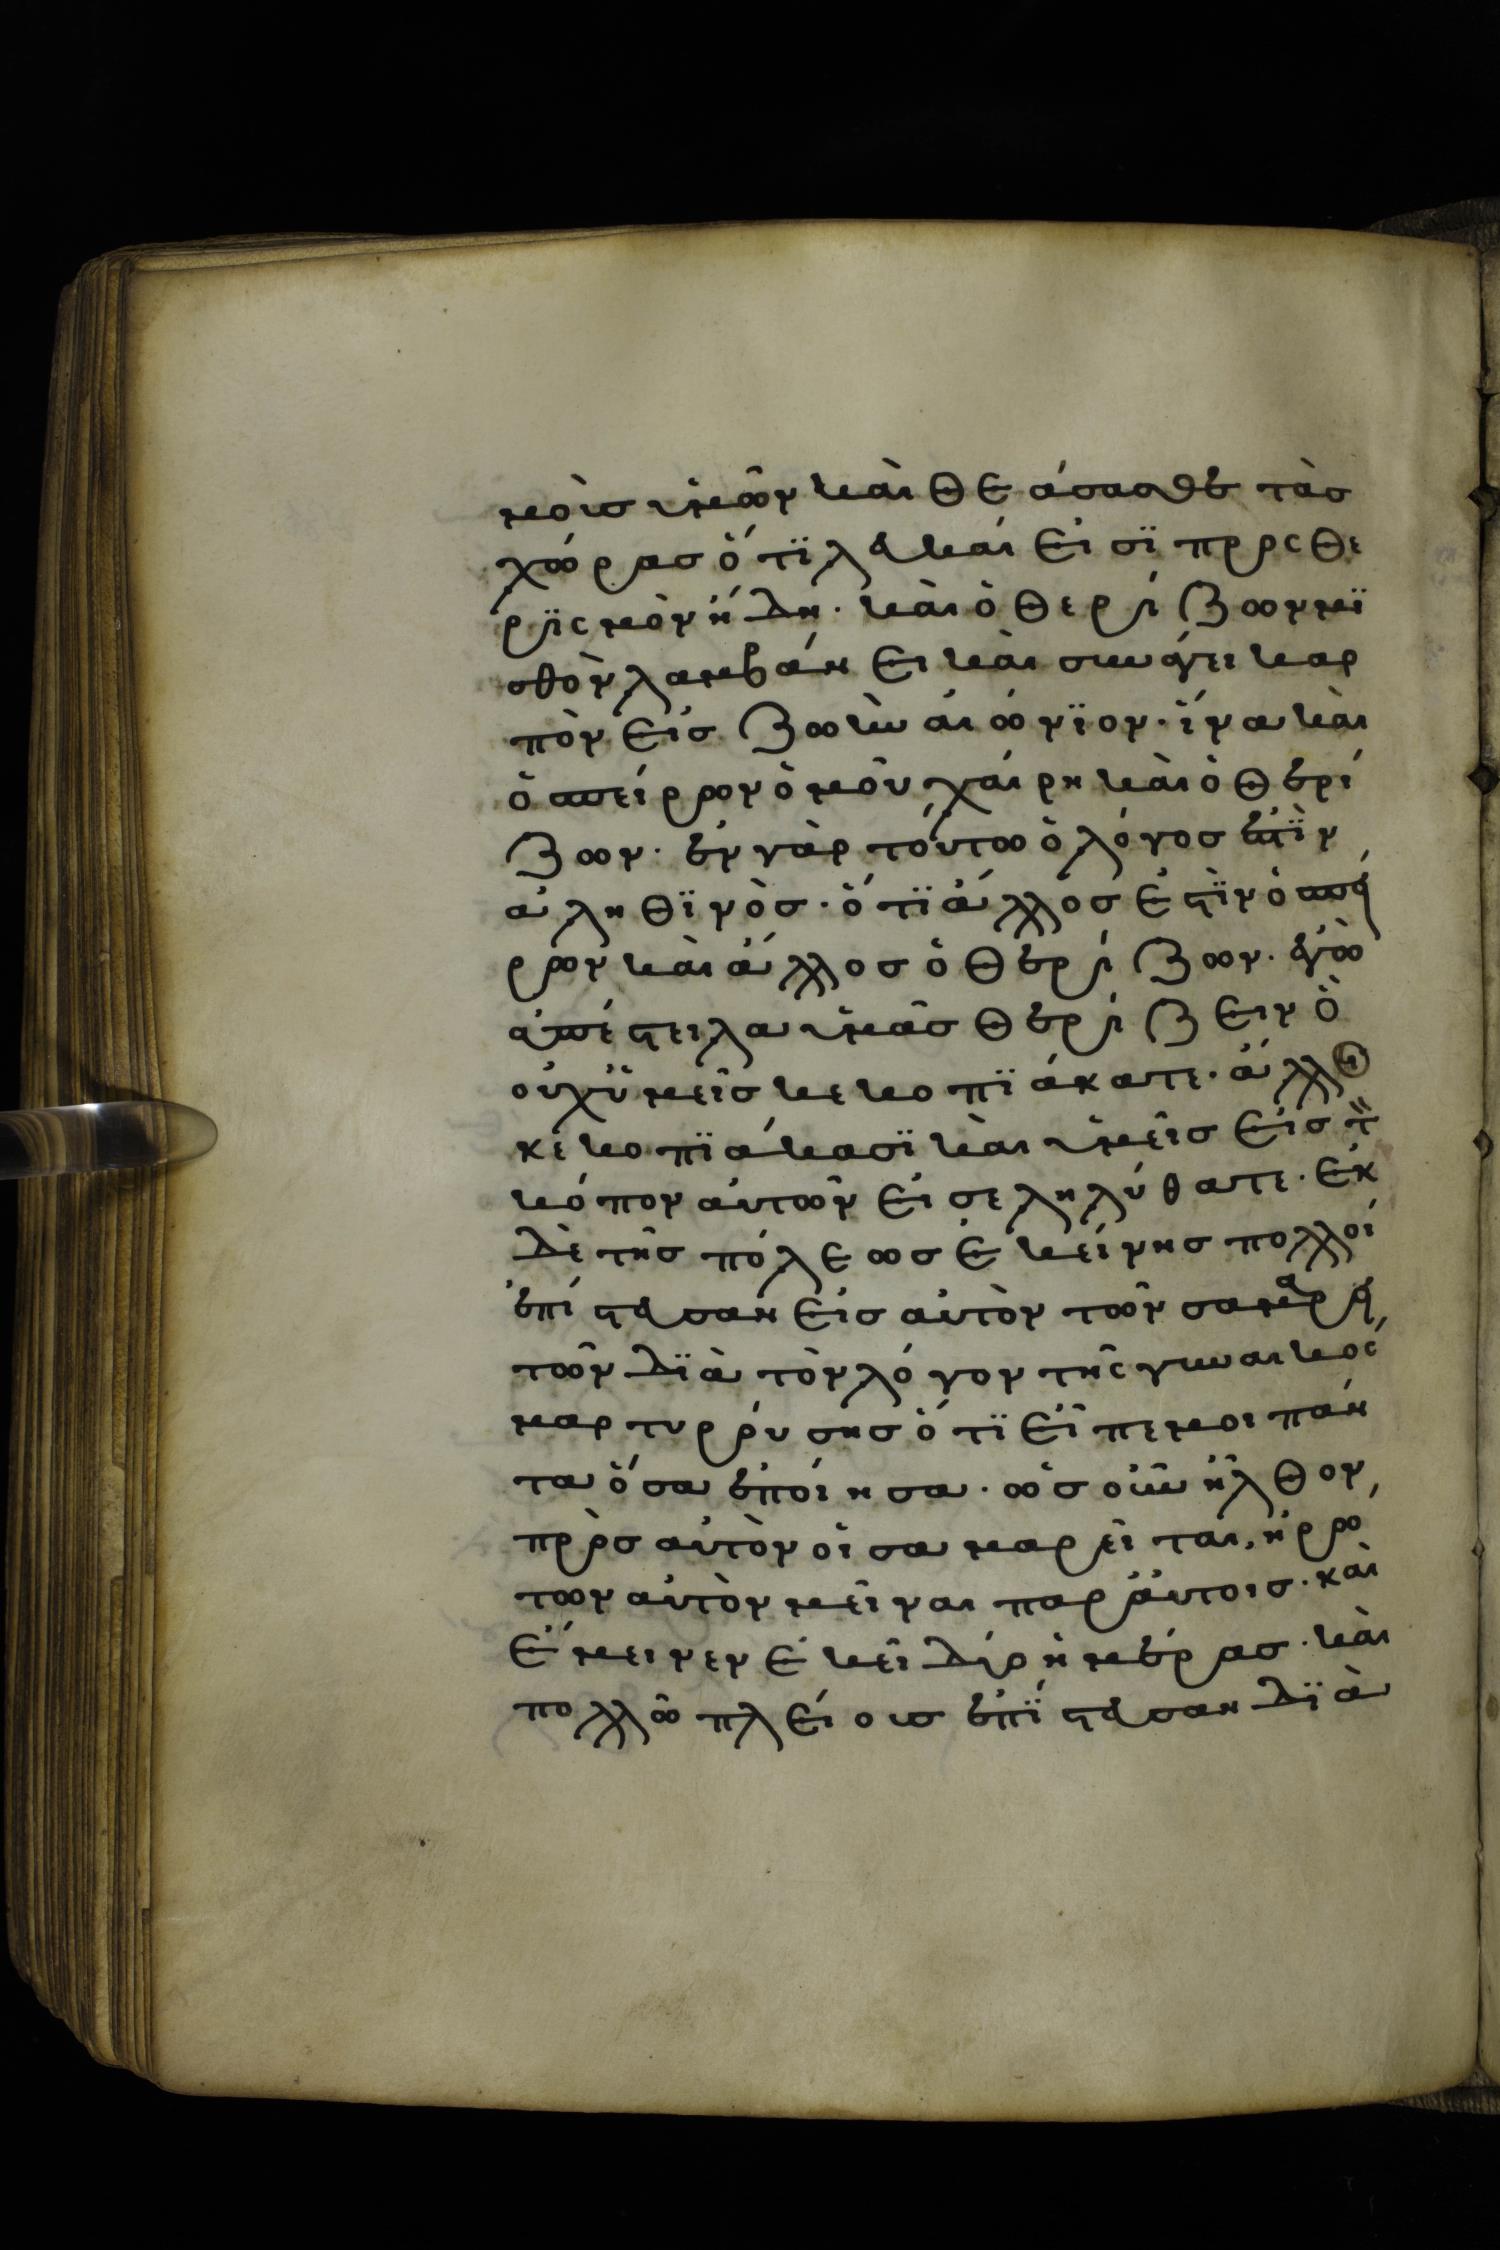 μοὺσ ὑμῶν καὶ θεάσασθε τὰσ
χώρασ ὅτϊ λευκαί εἰσϊ πρὸς θε
ρϊςμὸν ἤδη· καὶ ὁ θερίζων μϊ
σθὸν λαμβάνει καὶ συνάγει καρ
πὸν εἰσ ζωὴν αἰώνϊον· ἵνα καὶ
ὁ σπείρων ὁμοῦ χαίρη καὶ ὁ θερί
ζων· ἐν γὰρ τούτω ὁ λόγοσ ἐστϊν
ἀληθϊνὸσ· ὅτϊ ἄλλοσ ἐστϊν ὁ σπεί
ρων καὶ ἄλλοσ ὁ θερίζων· ἐγὼ
ἀπέστειλα ὑμᾶσ θερίζειν ὃ
οὐχ ὑμεῖσ κεκοπϊάκατε· ἄλλοι
κεκοπϊάκασϊ καὶ ὑμεῖσ εἰσ τὸν
κόπον αὐτῶν εἰσεληλύθατε· ἐκ
δὲ τῆσ πόλεωσ ἐκείνησ πολλοί
ἐπίστευσαν εἰσ αὐτὸν τῶν σαμαρει
τῶν δϊὰ τὸν λόγον τῆς γυναικός
μαρτυρούσησ ὅτϊ εἶπε μοι πάν
τα ὅσα ἐποίησα· ὡσ οὖν ἦλθον
πρὸσ αὐτὸν οἱ σαμαρεῖται, ἠρώ
των αὐτὸν μεῖναι παρ αὐτοισ· καὶ
ἔμεινεν ἐκεῖ δύο ἡμέρασ· καὶ
πολλῶ πλείουσ ἐπϊστευσαν δϊὰ